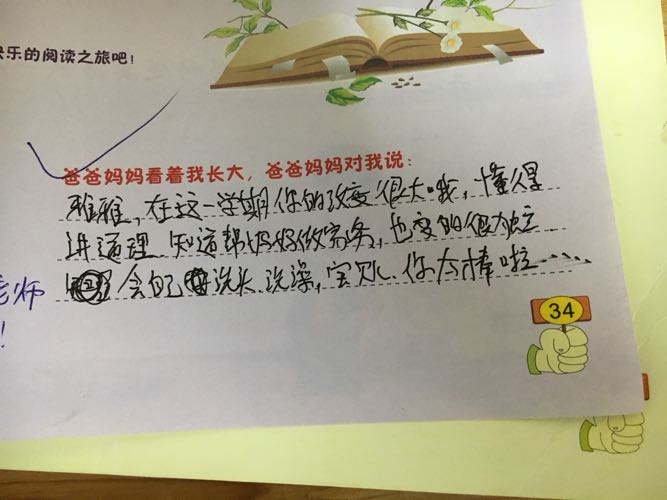 乐的阅读之旅吧！
爸爸妈妈看着我长大，爸爸妈妈对我说：
雅雅，在这一学期你的改变很大哦，懂得
讲道理，知道帮妈妈做家务，也变的很独立
会自己洗头、洗澡，宝贝，你太棒啦……
老师
！
34